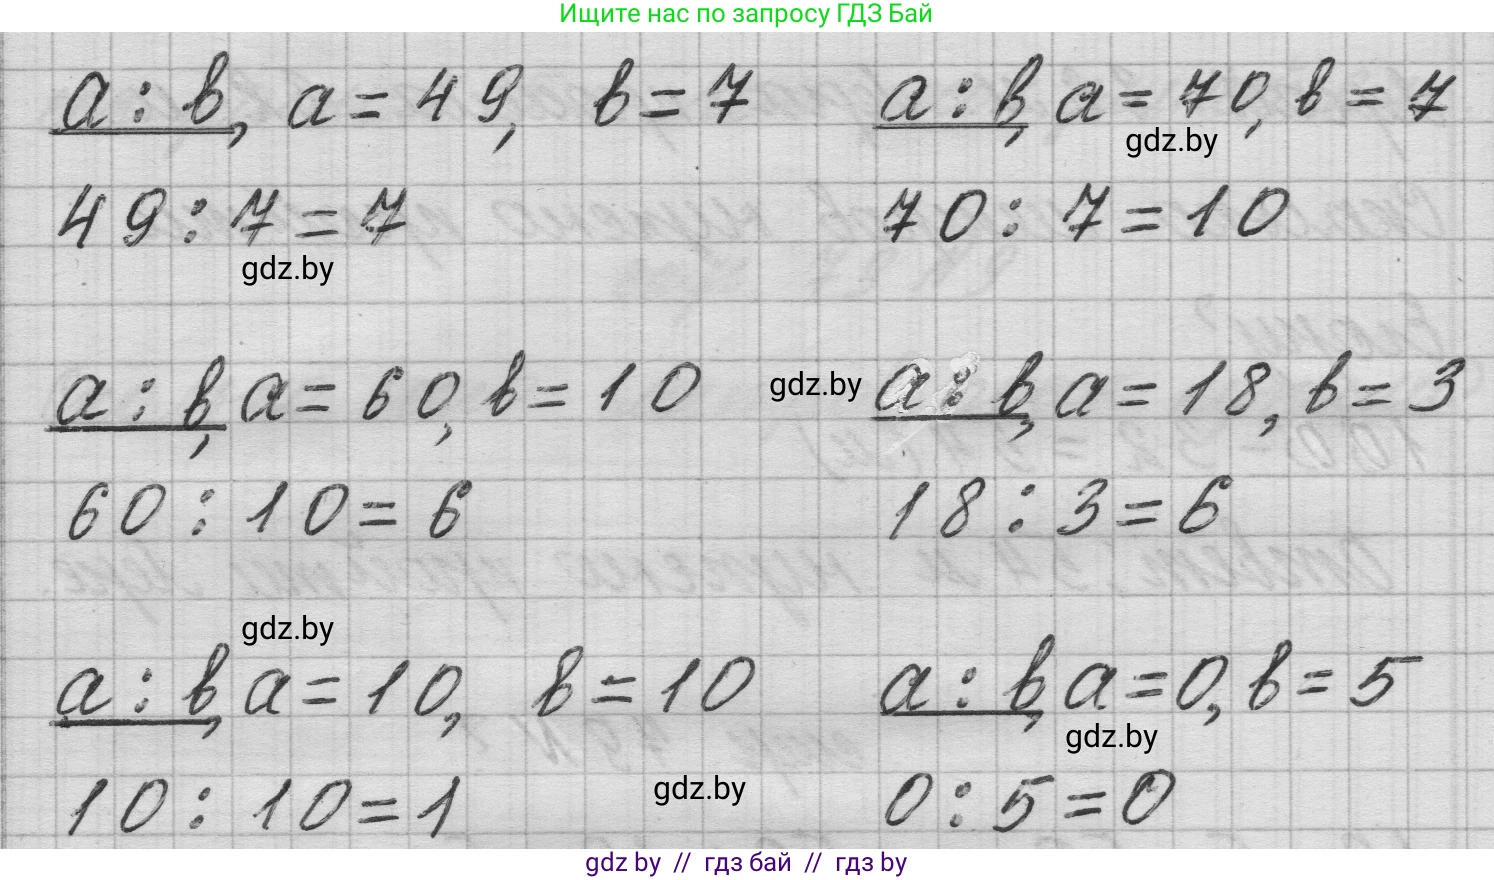 Ищите нас по запросу ГДЗ Бай
a : b, a = 49, b = 7
a : b, a = 70, b = 7
gdz.by
49 : 7 = 7
70 : 7 = 10
gdz.by
a : b, a = 60, b = 10
gdz.by
a : b, a = 18, b = 3
60 : 10 = 6
18 : 3 = 6
gdz.by
a : b, a = 10, b = 10
a : b, a = 0, b = 5
gdz.by
10 : 10 = 1
gdz.by
0 : 5 = 0
gdz by // гдз бай // гдз by